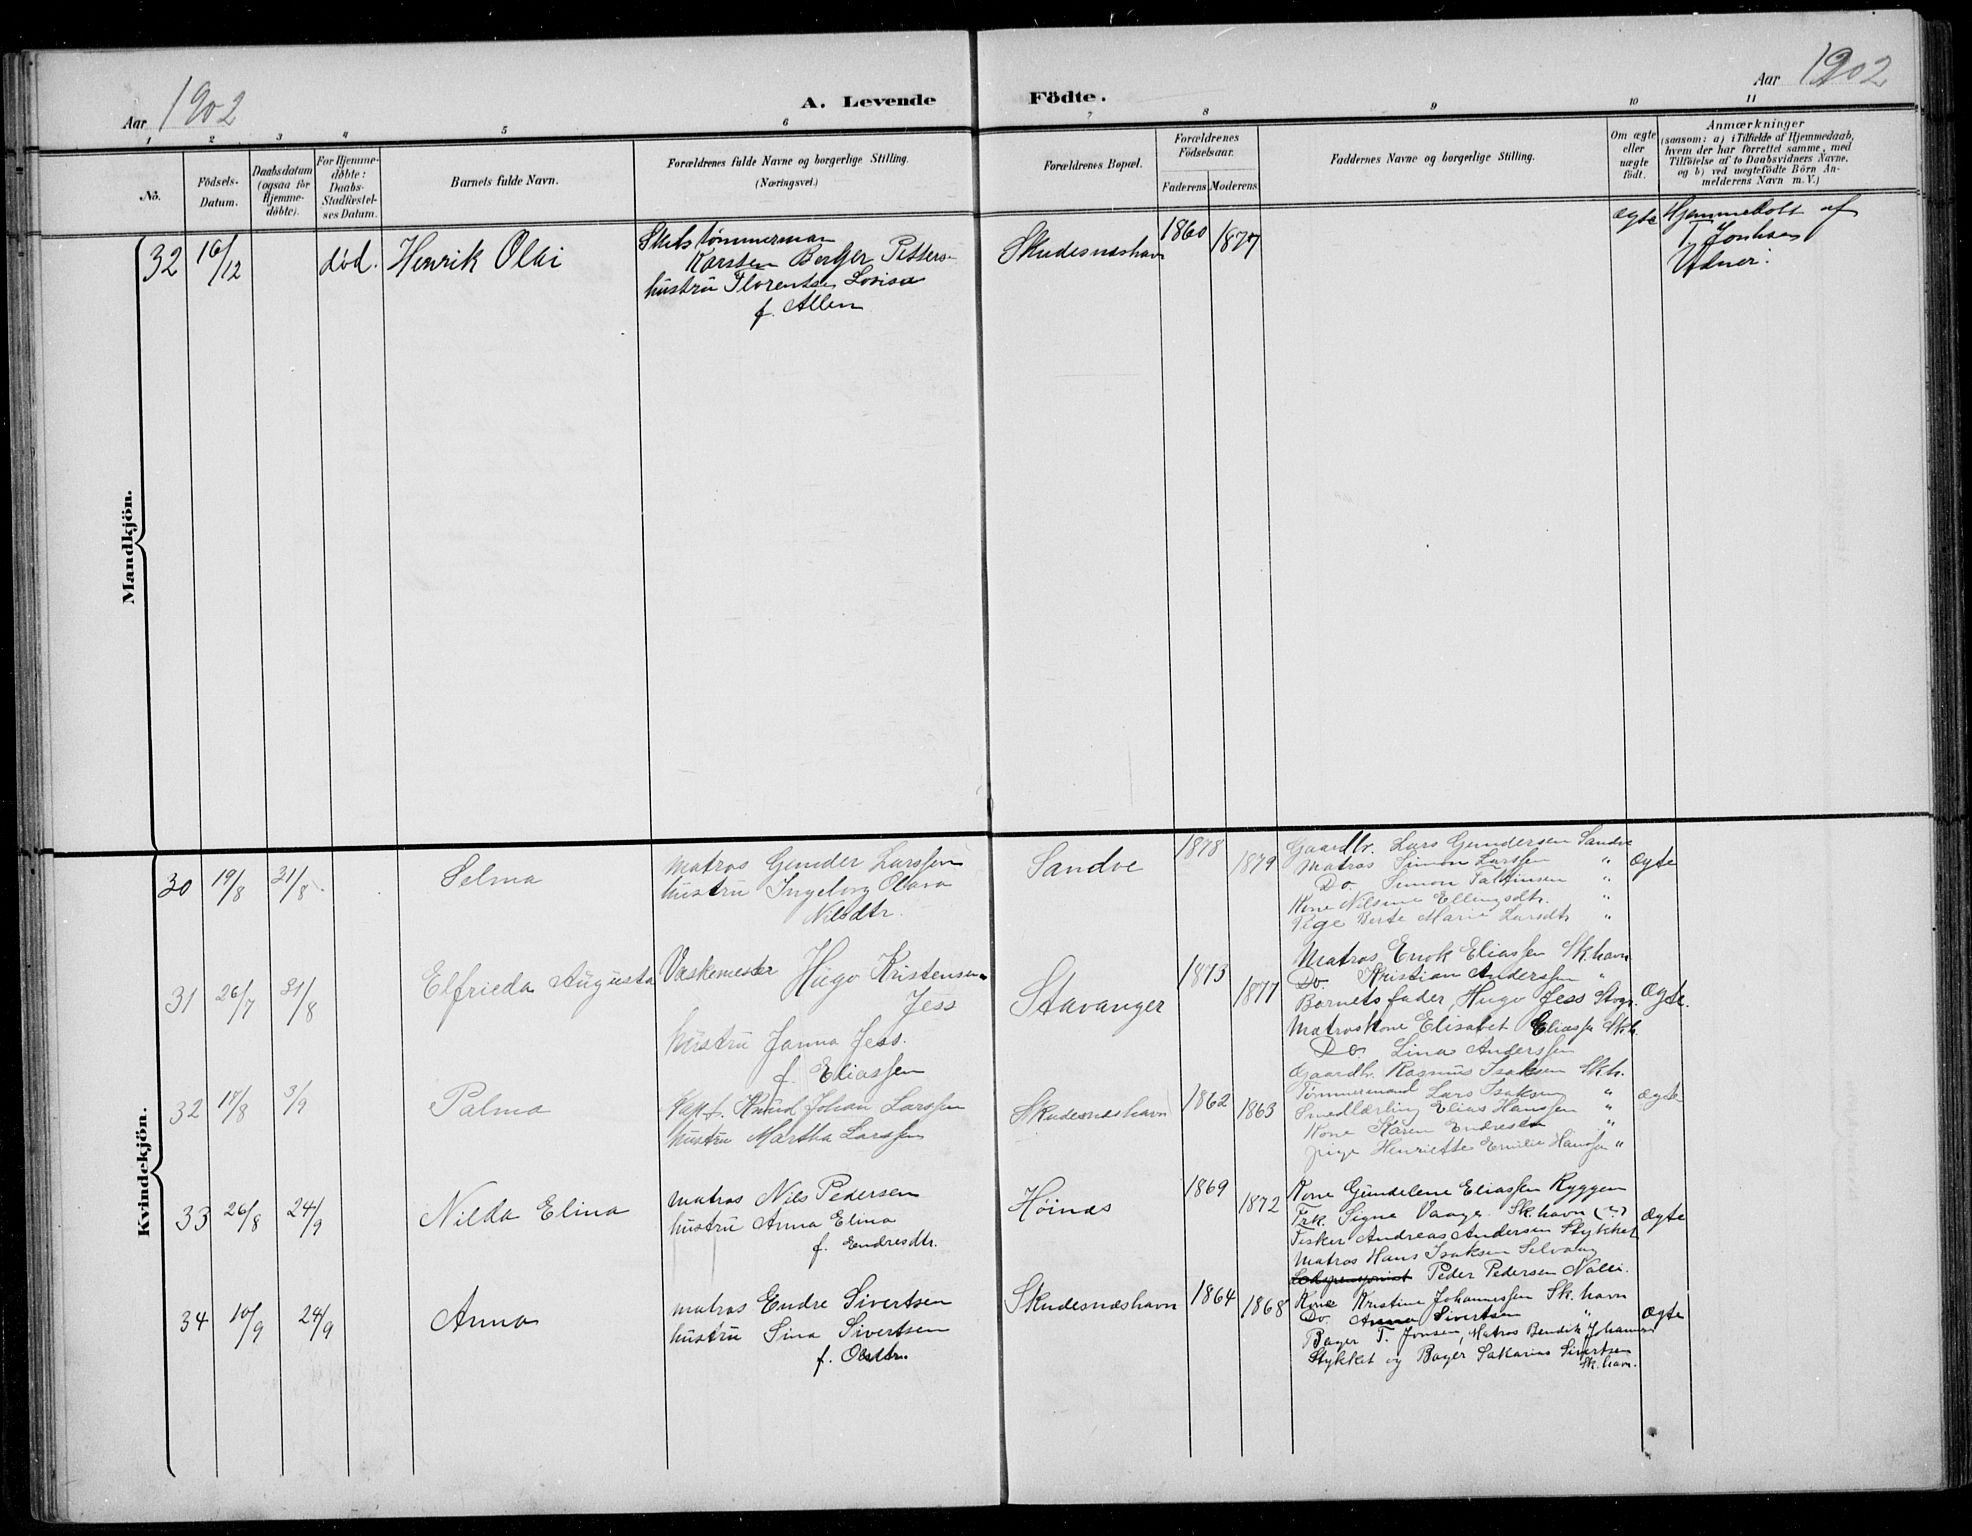 Aar 1902
A. Levende Födte.
Aar 1902
1 2 3 4 5 6 7 8 9 10 11
No.
Födsels-Datum.
Daabsdatum (ogsaa for Hjemme-döbte).
For Hjemme-döbte: Daabs-Stadfæstel-ses Datum.
Barnets fulde Navn.
Forældrenes fulde Navne og borgerlige Stilling. (Næringsvei.)
Forældrenes Bopæl.
Forældrenes Födselsaar.
Faderens Moderens
Faddernes Navne og borgerlige Stilling.
Om ægte eller uægte födt.
Anmærkninger
(saasom: a) i Tilfælde af Hjemmedaab,
hvem der har forrettet samme, med
Tilföielse af to Daabsvidners Navne,
og b) ved uægtefödte Börn An-
melderens Navn m. V.)
Mandkjön.
32 16/12 død. Henrik Olai
Skibstømmerman
Karsten Berger Petters-
hustru Florentse Lovisa
f. Allen
Skudesnæshavn 1860 1877
ægte
Hjemmedøbt af
T. Jonhsen
Vidner:
Kvindekjön.
30 19/8 31/8 Selma
Matros Gunder Larssen
hustru Ingeborg Olava
Nilsdtr.
Sandve 1878 1879
Gaardbr. Lars Gundersen Sandve
Matros Simon Larssen "
Do. Simon "
Kone Nilsine Ellingsdtr. "
Pige Berte Marie Larsdtr "
ægte
31 26/7 31/8 Elfrieda Augusta
Vaskemester Hugo Kristensen
Jess
hustru Janna Jess.
f. Eliassen
Stavanger 1873 1877
Matros Enok Eliassen Sk.havn
Do. Kristian Anderssen "
Barnets fader, Hugo Jess Stvgr.
Matroskone Elisabet Eliassen Skh.
Do. Lina Anderssen
ægte.
32 18/8 3/9 Palma
Kapt. Knud Johan Larssen
hustru Martha Larssen
Skudesnæshavn 1862 1863
Gaardbr. Rasmus Isaksen Skh.
Tømmermand Lars Isaksen "
Smedlærling Elias Hanssen "
Kone Karen Endresen "
pige Henriette Emilie Hanssen "
ægte
33 26/8 24/9 Nilda Elina
Matros Nils Pedersen
hustru Anna Elina
f. Endresdtr.
Høinæs 1869 1872
Kone Gundelene Eliassen Ryggen
Frk. Signe Vaage Sk.havn (?)
Fisker Andreas Andersen Stykket
Matros Hans Isaksen Selvaag
Lodspensjonist Peder Pedersen
ægte
34 10/9 24/9 Anna
Matros Endre Sivertsen
hustru Sina Sivertsen
f. Olsdtr.
Skudesnæshavn 1864 1868
Kone Kristine Johannessen Sk.havn
Do. Anna Sivertsen "
Bager T. Jonsen, Matros Bendik Johannes
Stykket og Bager Sakarias Sivertsen
Sk.havn.
ægte